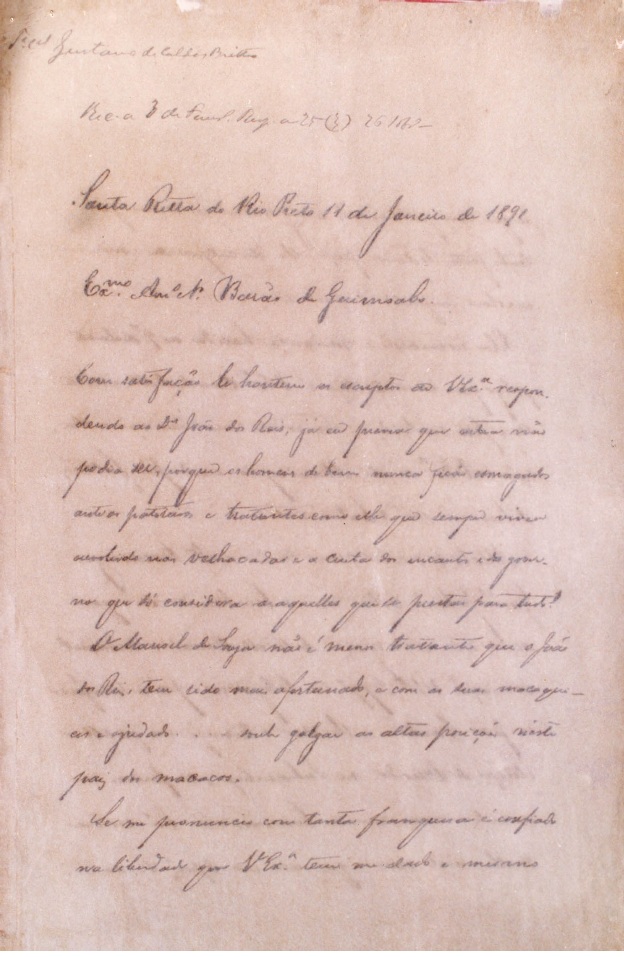 Gustavo de Caldas Britto
Rec. a 8 de Fever. Resp. a 25
Santa Ritta do Rio Preto 11 de Janeiro de 1891
Ex.mo Am.o Sr. Barão de Geremoabo
Com satisfação li hontem os escriptos de VEx.cia respon-
dendo ao Dr. João dos Reis, já eu previa que outra não
podia ser, porque os homens de bem nunca ficão esmagados
patoteiros e tratantes como elle que sempre viveu
envolvido nas velhacadas e a custa dos incautos e dos gover-
nos que só considera a aquelles que prestão para tudo!
O Manoel de Souza não é menos tratante que o João
dos Reis, tem sido mais afortunado, e com as suas macaqui-
ces e ajudado . . . soube galgar as altas posições neste
paiz dos macacos.
Se me pronuncio com tanta franquesa é confiado
na liberdade que VEx.cia tem me dado e mesmo